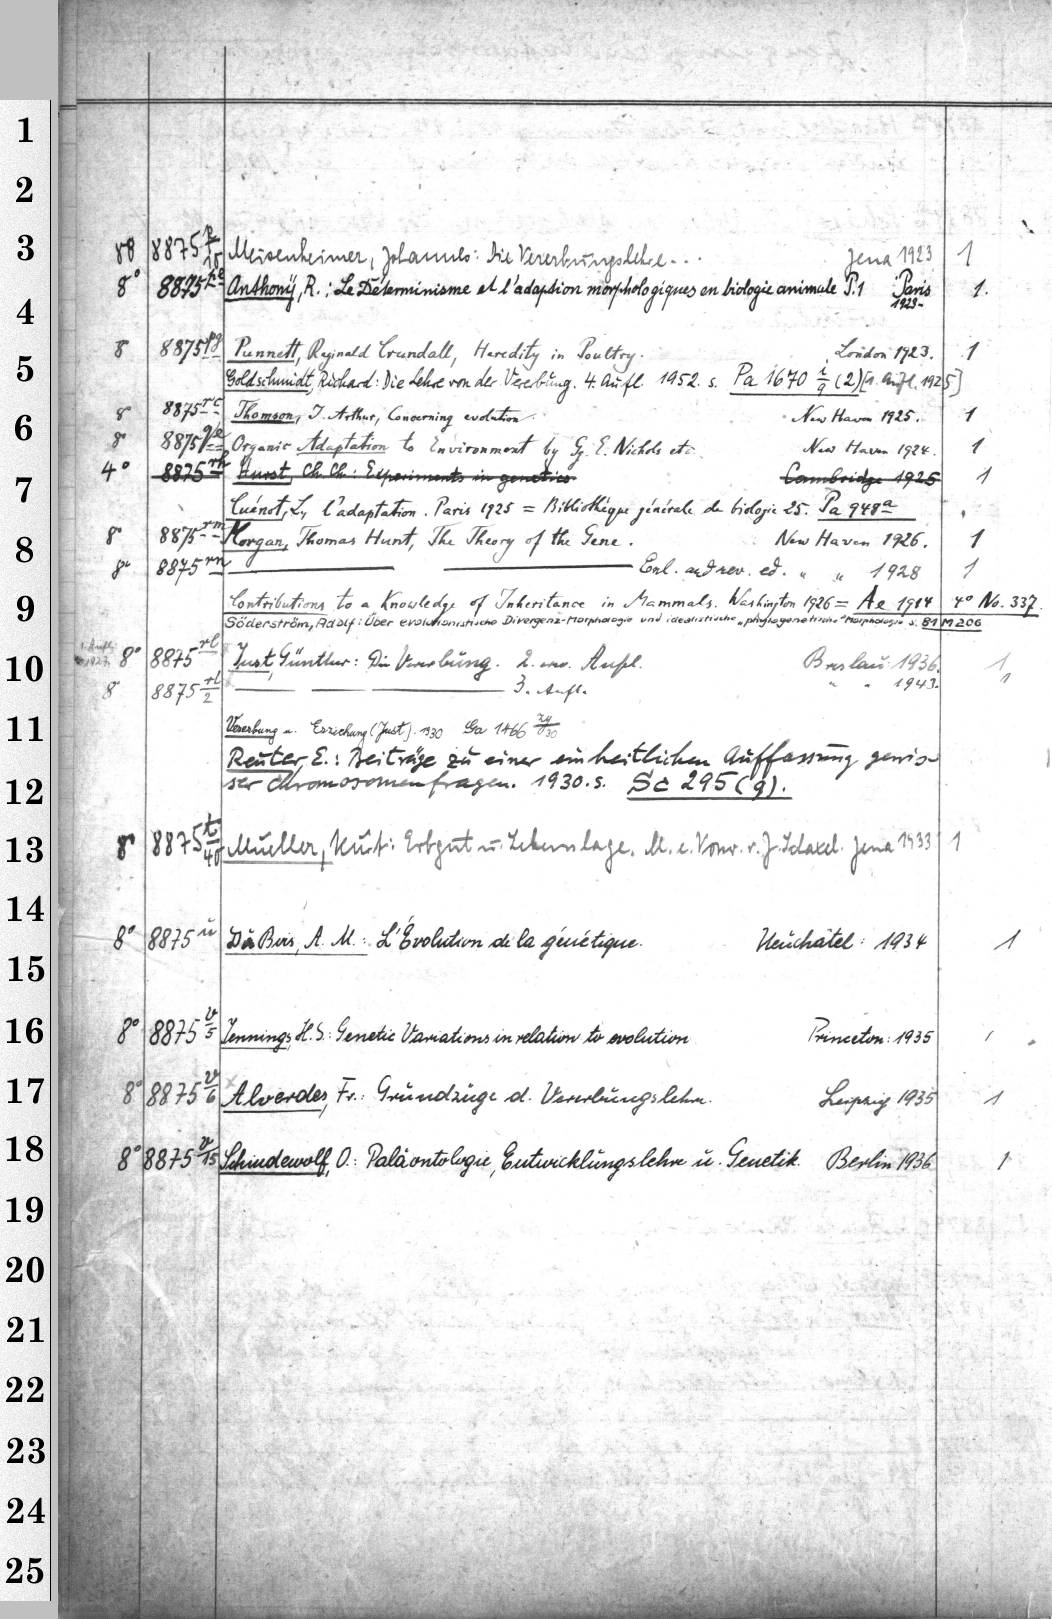 1
2
3
8° 8875 p/10 Meisenheimer, Johannes: Die Vererbungslehre... Jena 1923 1
8° 8875 Anthony, R.: Le Déterminisme et l'adaption morphologiques en biologie animale P.1 Paris 1923- 1.
4
8 8875 pg Punnett, Reginald Crundall, Heredity in Poultry. London 1923. 1
5
Goldschmidt, Richard: Die Lehre von der Vererbung. 4. Aufl. 1952. s. Pa 1670 i/9 (2) [1. Aufl. 1925]
8 8875 rc Thomson, J. Arthur, Concerning evolution New Haven 1925. 1
6
8° 8875 Organic Adaptation to Environment by G. E. Nichols etc. New Haven 1924. 1
4° 8875 rh Hurst, Ch. Ch.: Experiments in genetics Cambridge 1925 1
7
Cuénot, L., l'adaptation. Paris 1925 = Bibliothèque générale de biologie 25. Pa 948 a
8° 8875 rm Morgan, Thomas Hunt, The Theory of the Gene. New Haven 1926. 1
8
8° 8875 rn Enl. and rev. ed. " " 1928 1
9
Contributions to a Knowledge of Inheritance in Mammals. Washington 1926 = Ae 1914 4° No. 337.
Söderström, Adolf: Über evolutionistische Divergenz-Morphologie und idealistische "phylogenetische" Morphologie s. 81 M 206
1. Aufl. 1927. 8° 8875 rl Just, Günther: Die Vererbung. 2. erw. Aufl. Breslau 1936. 1
10
8 8875 rl/2 3. Aufl. " " 1943. 1
11
Vererbung u. Erziehung (Just). 1930 Ga 1466
Reuter, E.: Beiträge zu einer einheitlichen Auffassung gewis-
12
ser Chromosomenfragen. 1930. s. Sc 295 (9).
13
8° 8875 t/40 Mueller, Kurt: Erbgut u. Lebenslage. M. e. Vorw. v. J. Schaxel. Jena 1933 1
14
8° 8875 u Du Bois, A. M.: L'Évolution de la génétique. Neuchâtel: 1934 1
15
16
8° 8875 v/5 Jennings, H. S.: Genetic Variations in relation to evolution Princeton: 1935 1
17
8° 8875 v/6 Alverdes, Fr.: Grundzüge d. Vererbungslehre. Leipzig 1935 1
18
8° 8875 v/15 Schindewolf, O.: Paläontologie, Entwicklungslehre u. Genetik. Berlin 1936 1
19
20
21
22
23
24
25